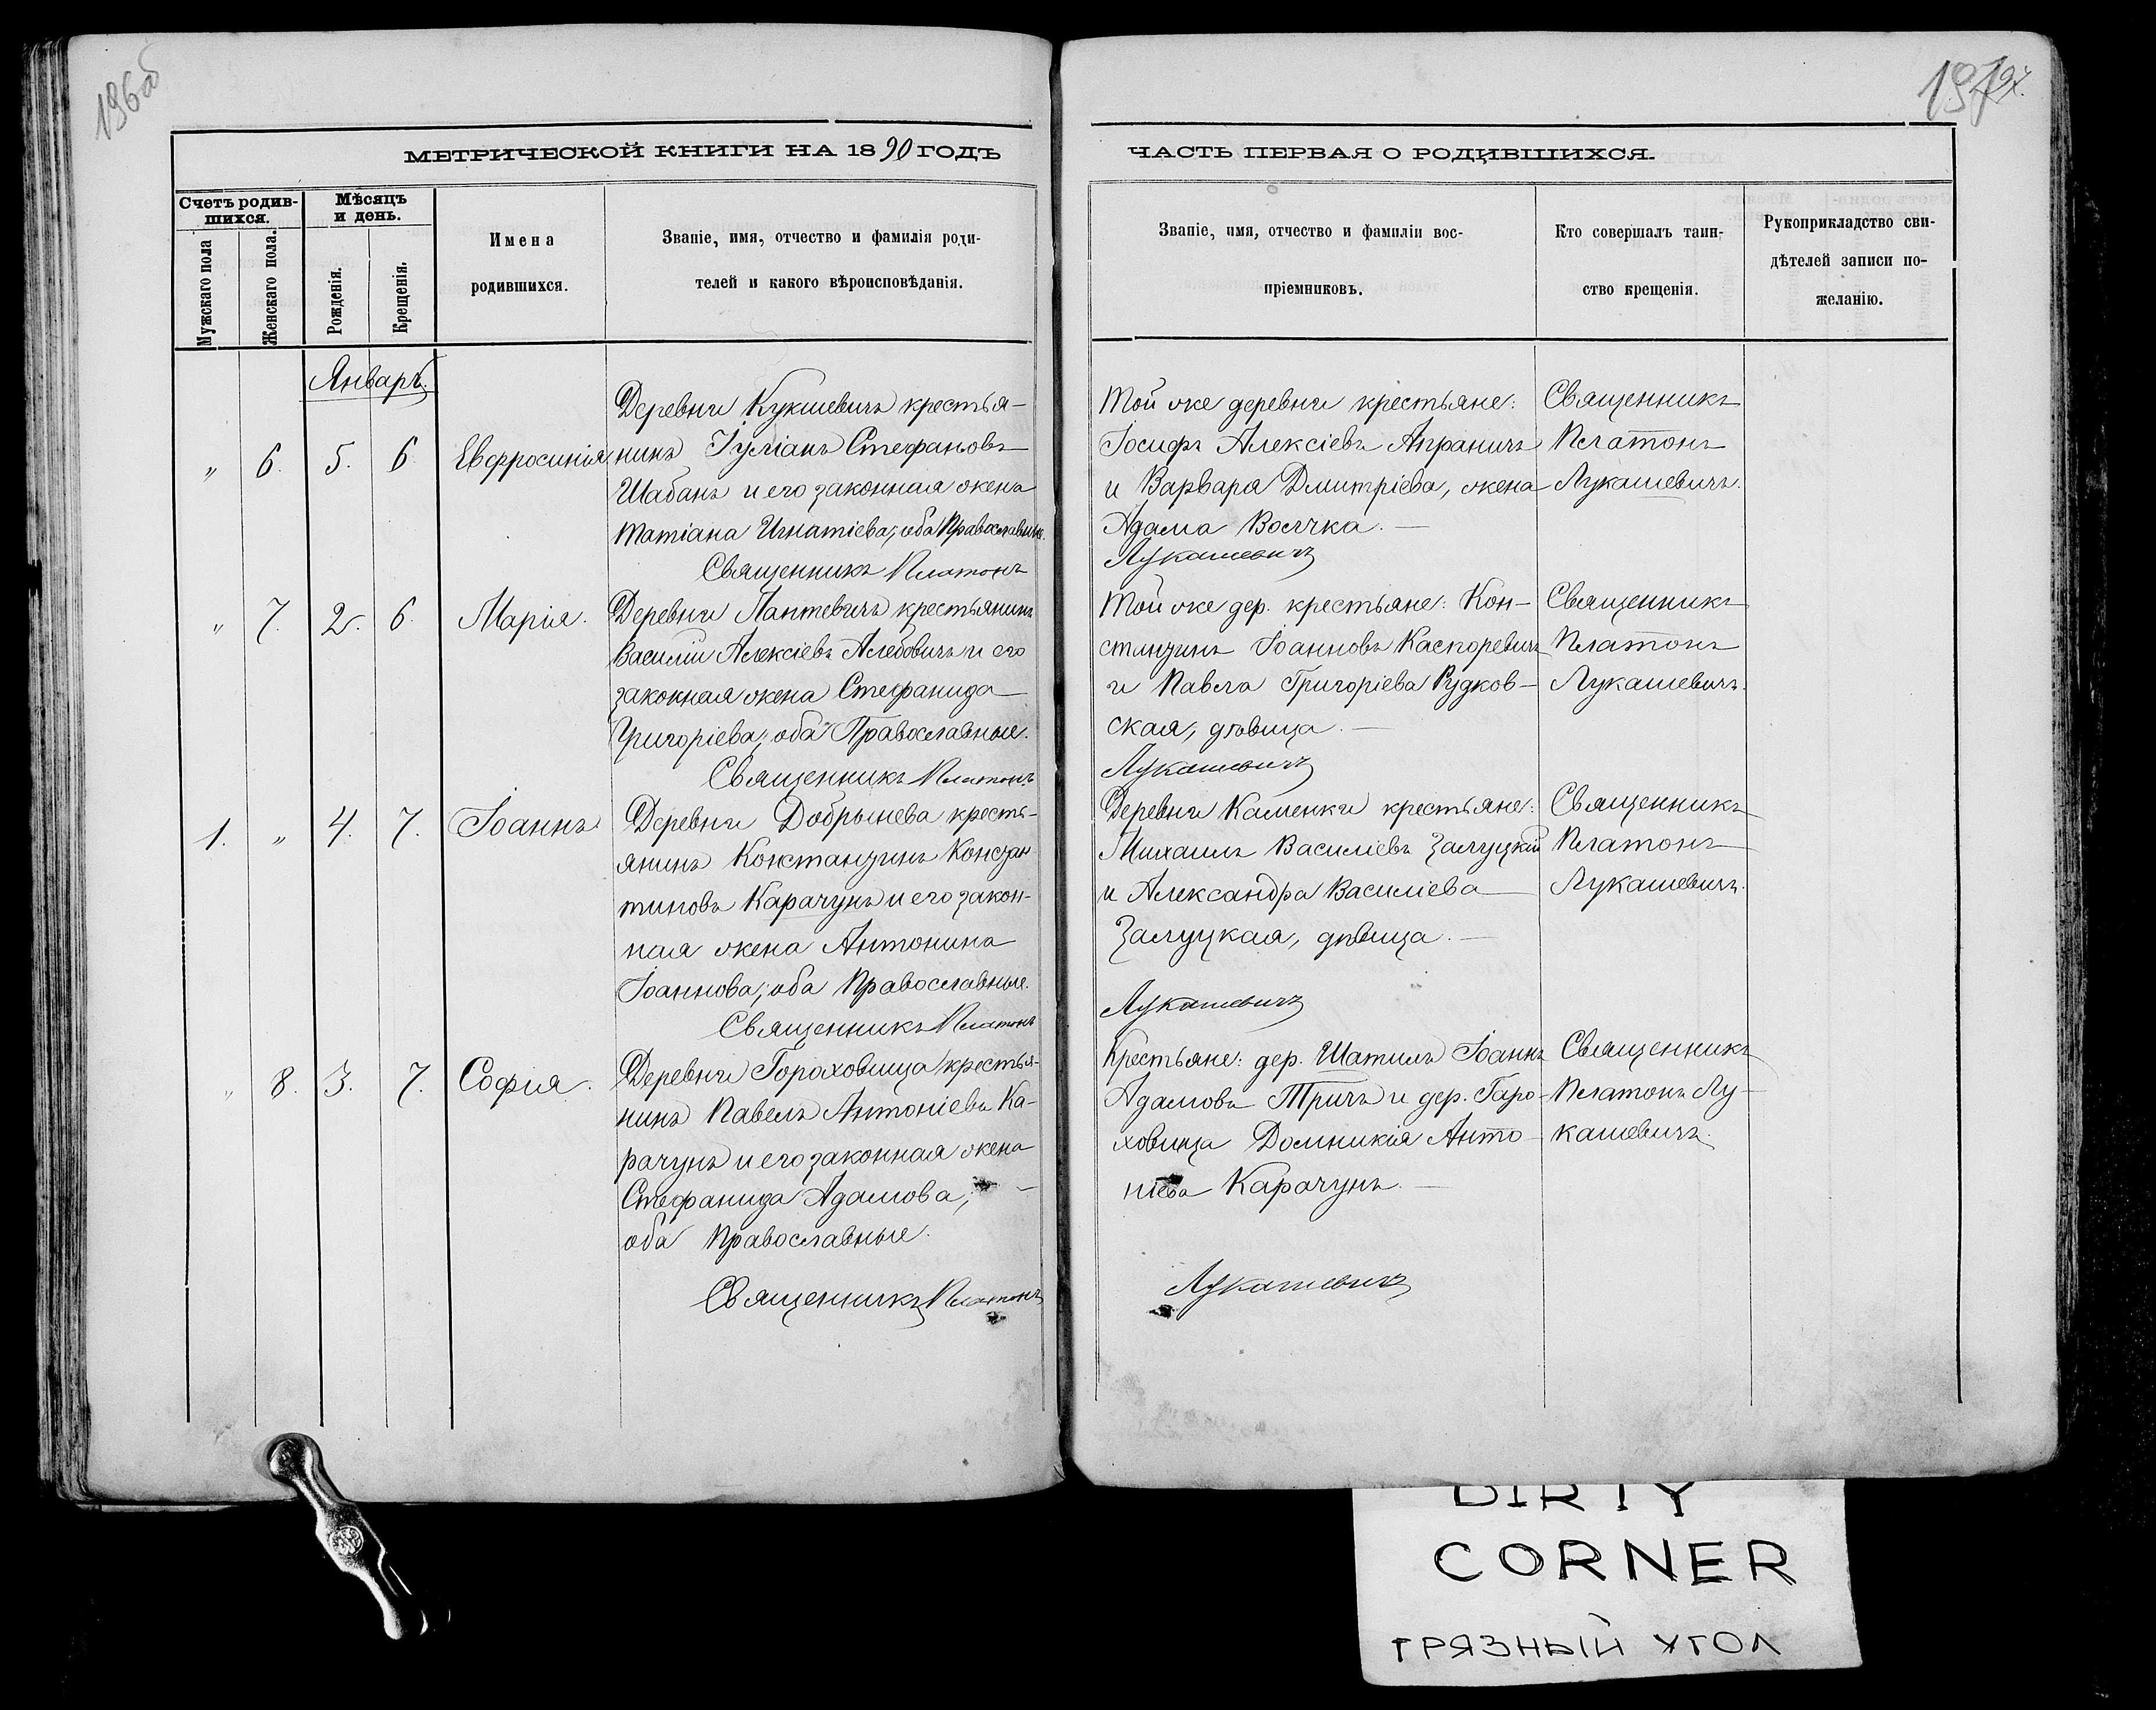 196об
197 97.
МЕТРИЧЕСКОЙ КНИГИ НА 1890 ГОДЪ
ЧАСТЬ ПЕРВАЯ О РОДИВШИХСЯ.
Счетъ родив-
шихся.
Мѣсяцъ
и день.
Мужскаго пола
Женскаго пола.
Рожденія.
Крещенія.
Имена
родившихся.
Званіе, имя, отчество и фамилія роди-
телей и какого вѣроисповѣданія.
Званіе, имя, отчество и фамиліи вос-
пріемниковъ.
Кто совершалъ таин-
ство крещенія.
Рукоприкладство сви-
дѣтелей записи по-
желанію.
Январь.
„ 6. 5. 6 Евфросинія
Деревни Кукшевичъ крестья-
нинъ Іуліанъ Стефановъ
Шабанъ и его законная жена
Татіана Игнатіева; оба Православные.
Священникъ Платонъ
Той же деревни крестьяне:
Іосифъ Алексіевъ Апраничъ
и Варвара Дмитріева, жена
Адама Волчка. —
Лукашевичъ
Священникъ
Платонъ
Лукашевичъ.
„ 7. 2. 6. Марія.
Деревни Лантевичъ крестьянинъ
Василій Алексіевъ Алебовичъ и его
законная жена Стефанида
Григоріева; оба Православные.
Священникъ Платонъ
Той же дер. крестьяне: Кон-
стантинъ Іоанновъ Каспоревичъ
и Павла Григоріева Рудков-
ская, дѣвица. —
Лукашевичъ
Священникъ
Платонъ
Лукашевичъ.
1. „ 4. 7. Іоаннъ
Деревни Добрынева кресть-
янинъ Константинъ Констан-
тиновъ Карачунъ и его закон-
ная жена Антонина
Іоаннова; оба Православные.
Священникъ Платонъ
Деревни Каменки крестьяне:
Михаилъ Василіевъ Залуцкій
и Александра Василіева
Залуцкая, дѣвица. —
Лукашевичъ
Священникъ
Платонъ
Лукашевичъ.
„ 8. 3. 7. Софія.
Деревни Гороховища крестья-
нинъ Павелъ Антоніевъ Ка-
рачунъ и его законная жена
Стефанида Адамова; —
оба Православные.
Священникъ Платонъ
Крестьяне: дер. Шатилъ Іоаннъ
Адамовъ Тричъ и дер. Горо-
ховища Домникія Анто-
ніева Карачунъ. —
Лукашевичъ
Священникъ
Платонъ Лу-
кашевичъ.
DIRTY
CORNER
ГРЯЗНЫЙ УГОЛ